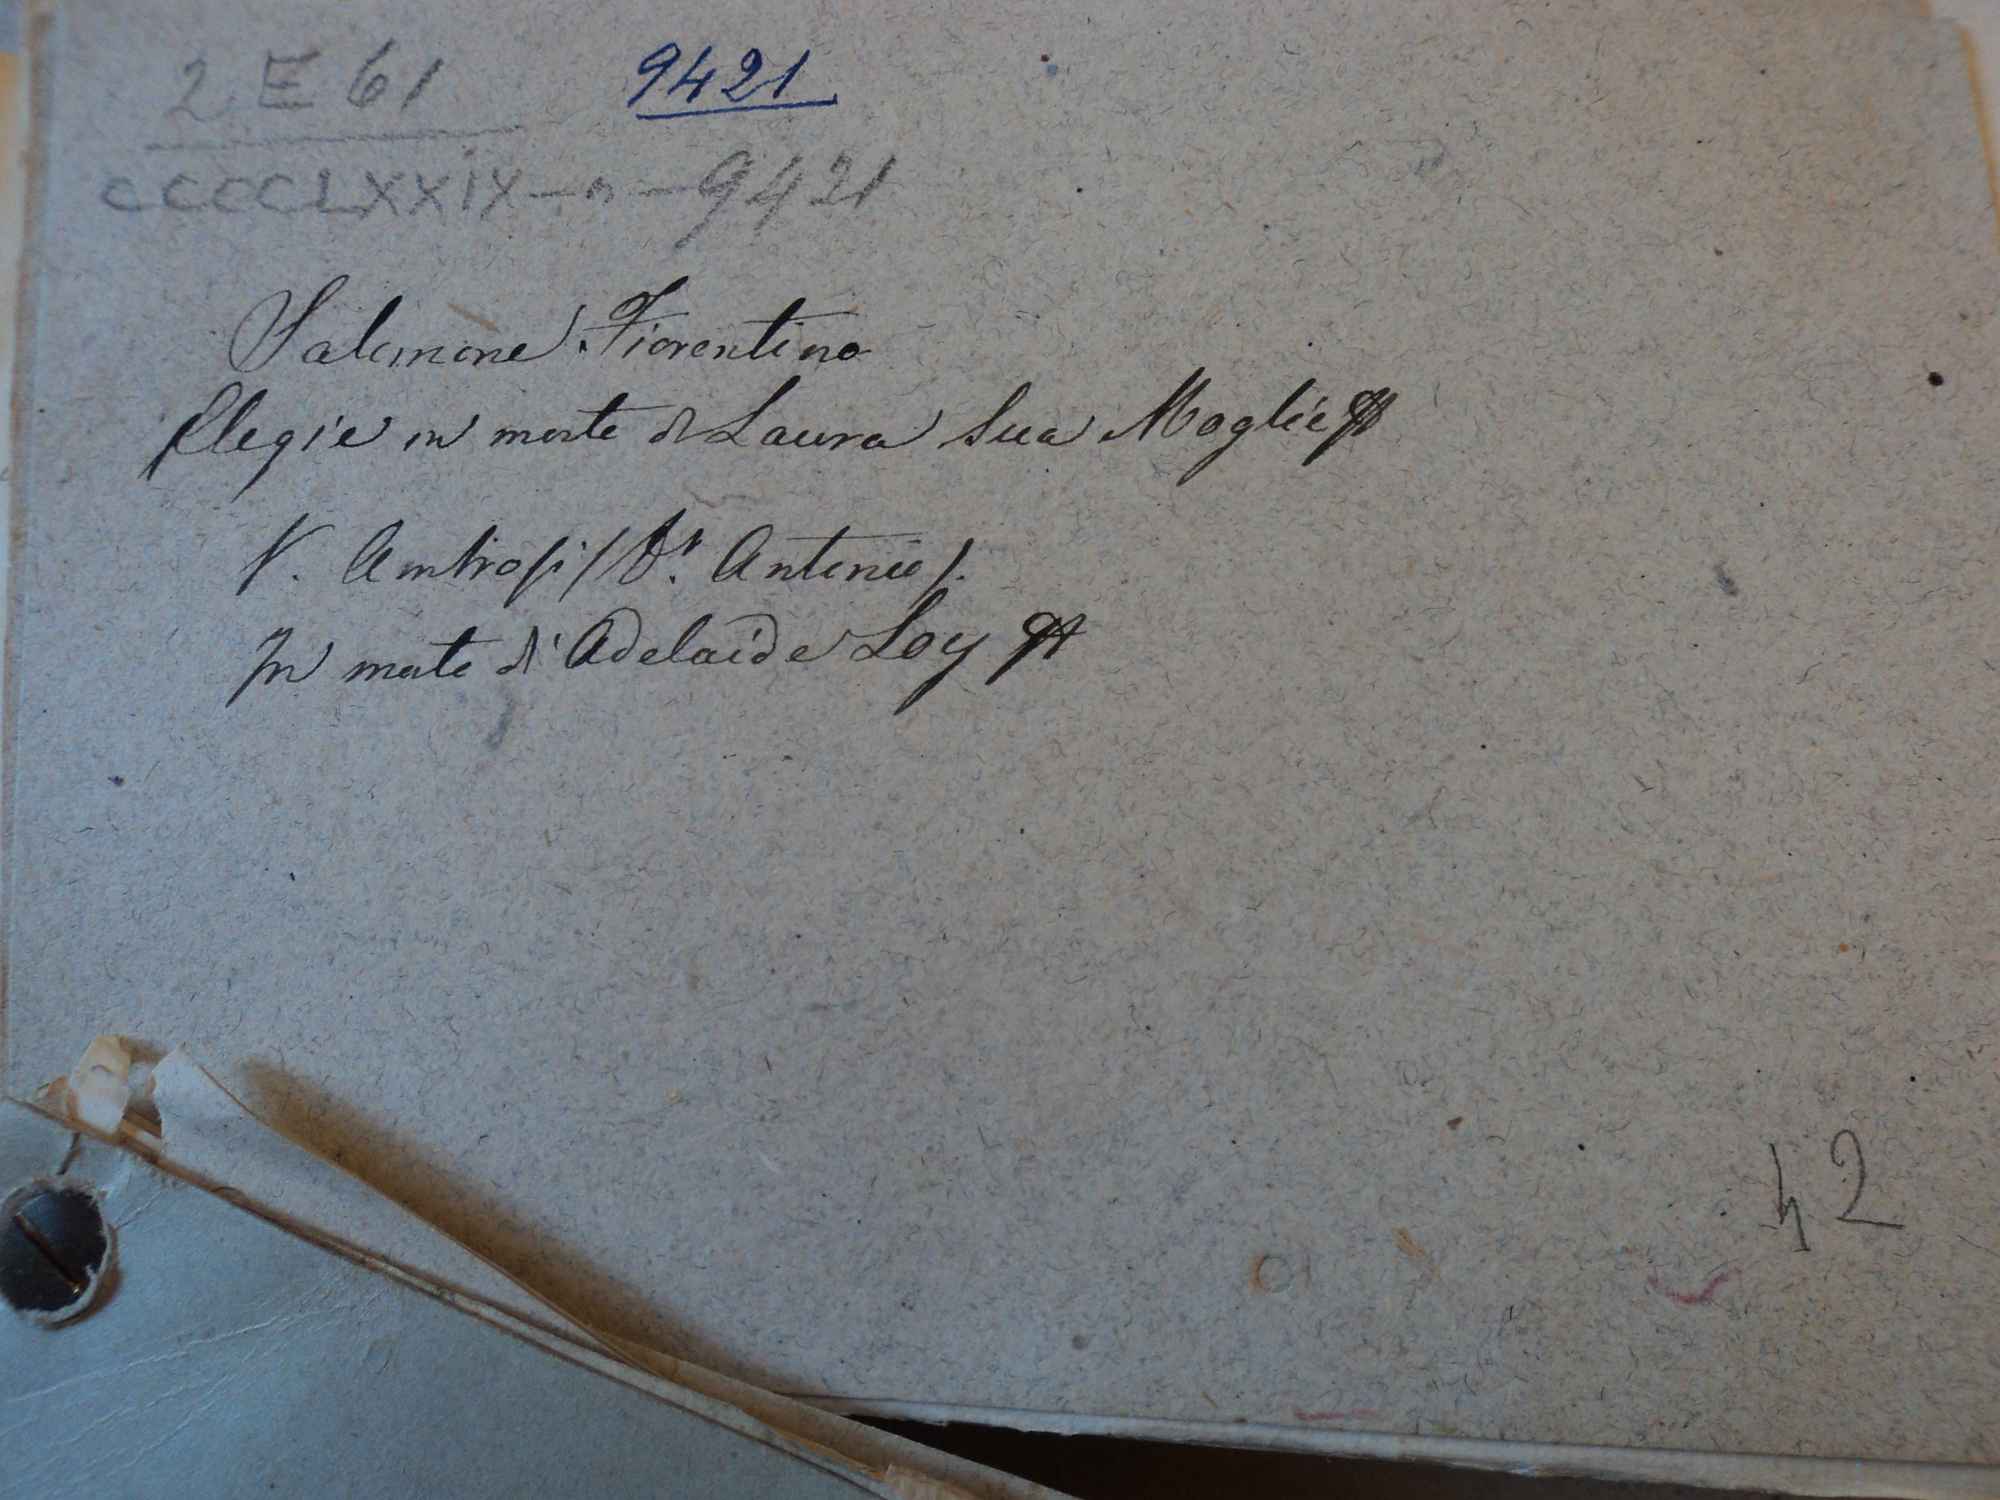 2 E 61 9421
CCCCLXXIX-n-9421
Salomone Fiorentino
Elegie in morte di Laura Sua Moglie
V. Ambrosi (Dr. Antonio).
In morte di Adelaide Loy
42